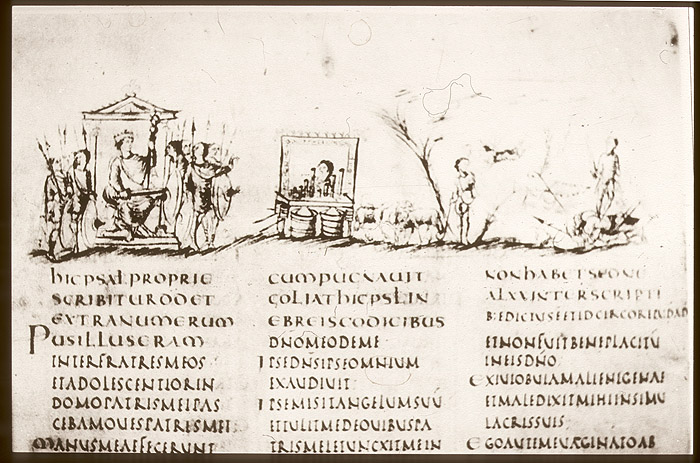 HIC PSAL PROPRIE
SCRIBITUR DD ET
EXTRA NUMERUM
PUSILLUS ERAM
INTER FRATRES MEOS
ET ADOLESCENTIOR IN
DOMO PATRIS MEI PAS
CEBAM OUES PATRIS MEI
MANUS MEAE FECERUNT
CUM PUGNAUIT
GOLIAT HIC PSL IN
EBREIS CODICIBUS
DNO MEO DE ME
IPSE DNS IPSE OMNIUM
EXAUDIUIT
IPSE MISIT ANGELUM SUU
ET TULIT ME DE OUIBUS PA
TRIS MEI ET UNCXIT ME IN
NON HABETUR
ET NON FUIT BENEPLACITU
IN EIS DNO
EXIUI OBUIAM ALIENIGENAE
ET MALEDIXIT MIHI IN SIMU
LACRIS SUIS
EGO AUTEM EUAGINATO AB